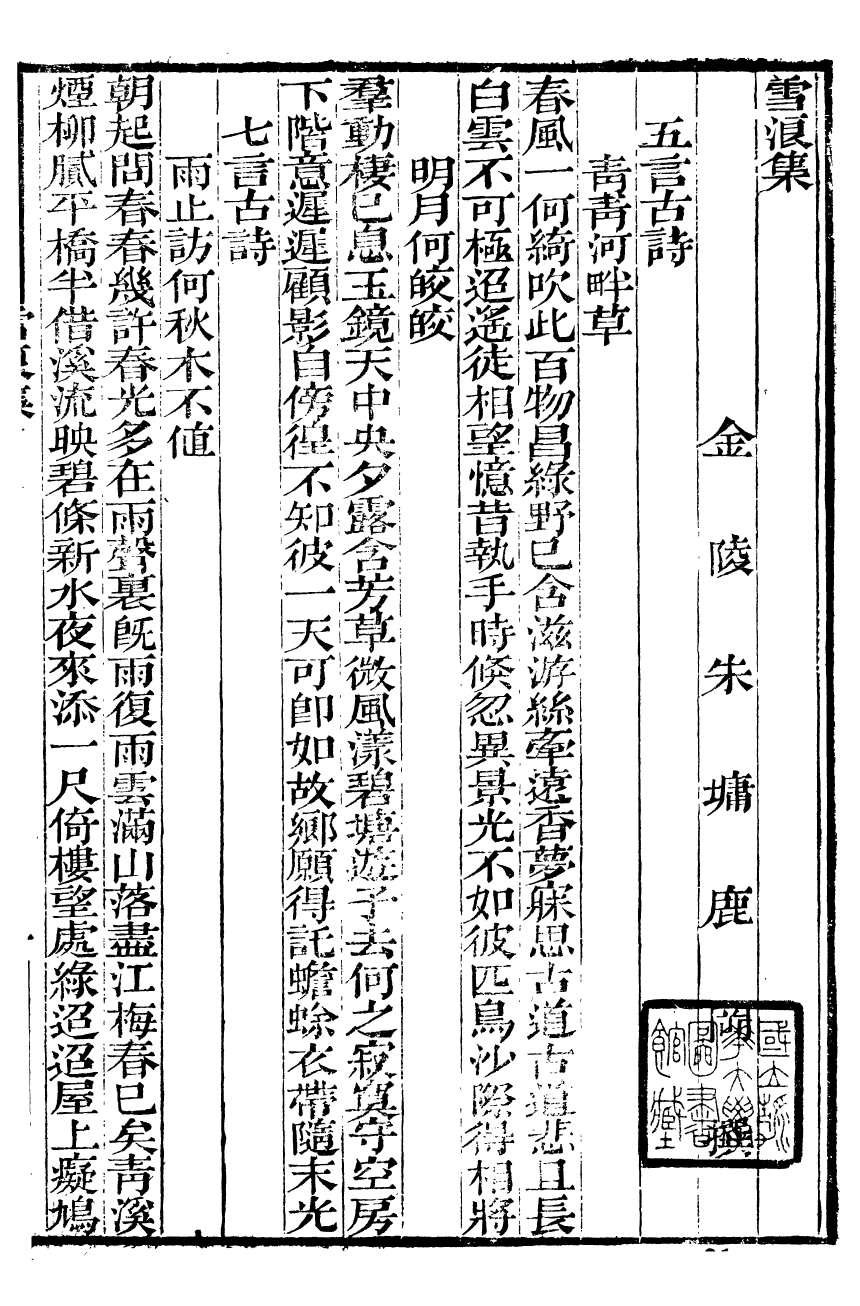 雪浪集
金陵朱墉鹿
五言古詩
靑靑河畔草
春風一何綺吹此百物昌綠野已含滋游絲牽遠香夢寐思古道古道悲且長
白雲不可極迢遙徒相望憶昔執手時倏忽異景光不如彼匹鳥沙際得相將
明月何皎皎
羣動棲已息玉鏡天中央夕露含芳草微風漾碧塘遊子去何之寂寞守空房
下階意遲遲顧影自傍徨不知彼一天可卽如故鄉願得託蟾蜍衣帶隨末光
七言古詩
雨止訪何秋木不値
朝起問春春幾許春光多在雨聲裏旣雨復雨雲滿山落盡江梅春已矣靑溪
煙柳膩平橋半借溪流映碧條新水夜來添一尺倚樓望處綠迢迢屋上癡鳩